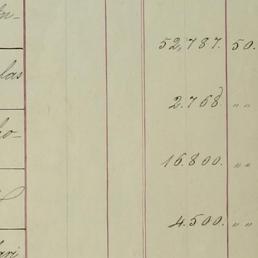 52,787. 50.
las
2.768 " "
16.800. " "
4.500. " "